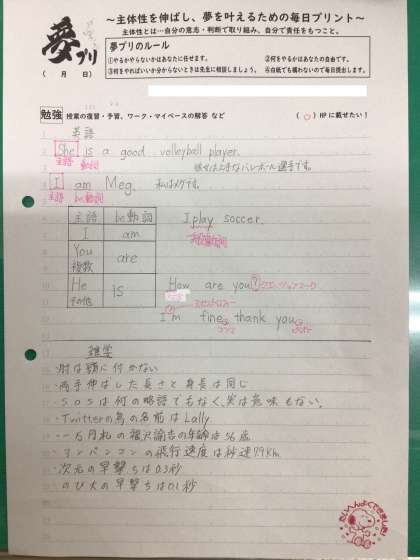 夢プリ
(　月　日)
～主体性を伸ばし、夢を叶えるための毎日プリント～
主体性とは…自分の意志・判断で取り組み、自分で責任をもつこと。
夢プリのルール
①やるかやらないかはあなたに任せます。　②何をやるかはあなたの自由です。
③何をやればいいか分からないときは先生に相談しましょう。　④白紙でも構わないので毎日提出します。
勉強 授業の復習・予習、ワーク・マイペースの解答 など　(○) HPに載せたい！
英語
She is a good volleyball player.
主語 動詞　彼女は上手なバレーボール選手です。
I am Meg. 私はメグです。
主語 be動詞
主語 be動詞　I play soccer.
I am
You 複数 are
He その他 is　How are you? クエッションマーク
I'm fine, thank you.
コンマ
雑学
・肘は顎に付かない
・両手伸ばした長さと身長は同じ
・SOSは何の略語でもなく、実は意味もない。
・Twitterの鳥の名前はLally
・一万円札の福沢諭吉の年齢は56歳
・アンパンマンの飛行速度は秒速79km
・次元の早撃ちは0.3秒
・のび太の早撃ちは0.1秒
たいへんよくできました！